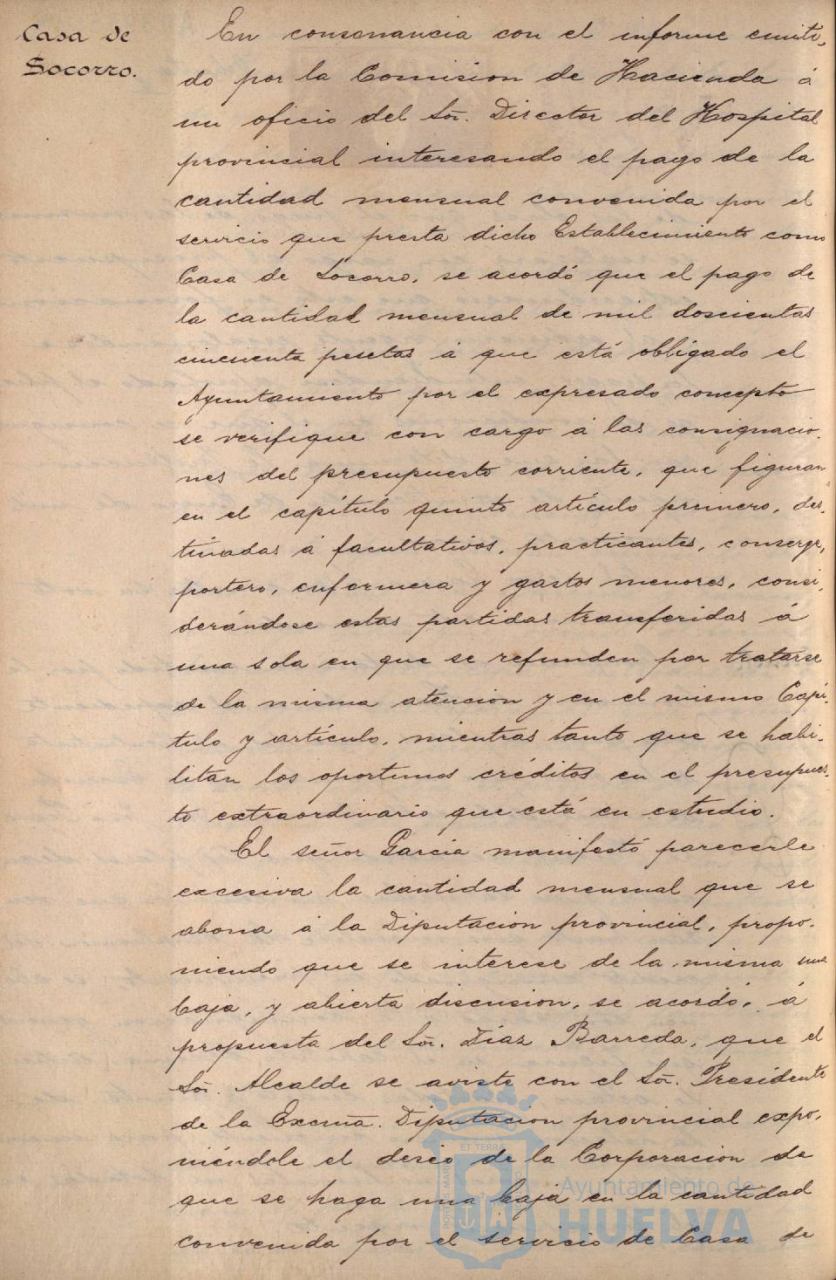 Casa de
Socorro.
En consonancia con el informe emiti-
do por la Comision de Hacienda á
un oficio del Sor. Director del Hospital
provincial interesando el pago de la
cantidad mensual convenida por el
servicio que presta dicho Establecimiento como
Casa de Socorro, se acordó que el pago de
la cantidad mensual de mil doscientas
cincuenta pesetas á que está obligado el
Ayuntamiento por el expresado concepto
se verifique con cargo á las consignacio-
nes del presupuesto corriente, que figuran
en el capítulo quinto artículo primero, des-
tinadas á facultativos, practicantes, conserge,
portero, enfermera y gastos menores, consi-
derándose estas partidas transferidas á
una sola en que se refunden por tratarse
de la misma atencion y en el mismo Capí-
tulo y artículo, mientras tanto que se habi-
litan los oportunos créditos en el presupues-
to extraordinario que está en estudio.
El señor García manifestó parecerle
excesiva la cantidad mensual que se
abona á la Diputacion provincial, propo-
niendo que se interese de la misma una
baja, y abierta discusion, se acordó, á
propuesta del Sor. Díaz Barreda, que el
Sor. Alcalde se aviste con el Sor. Presidente
de la Excma. Diputacion provincial expo-
niéndole el deseo de la Corporacion de
que se haga una baja en la cantidad
convenida por el servicio de Casa de
Ayuntamiento de
HUELVA